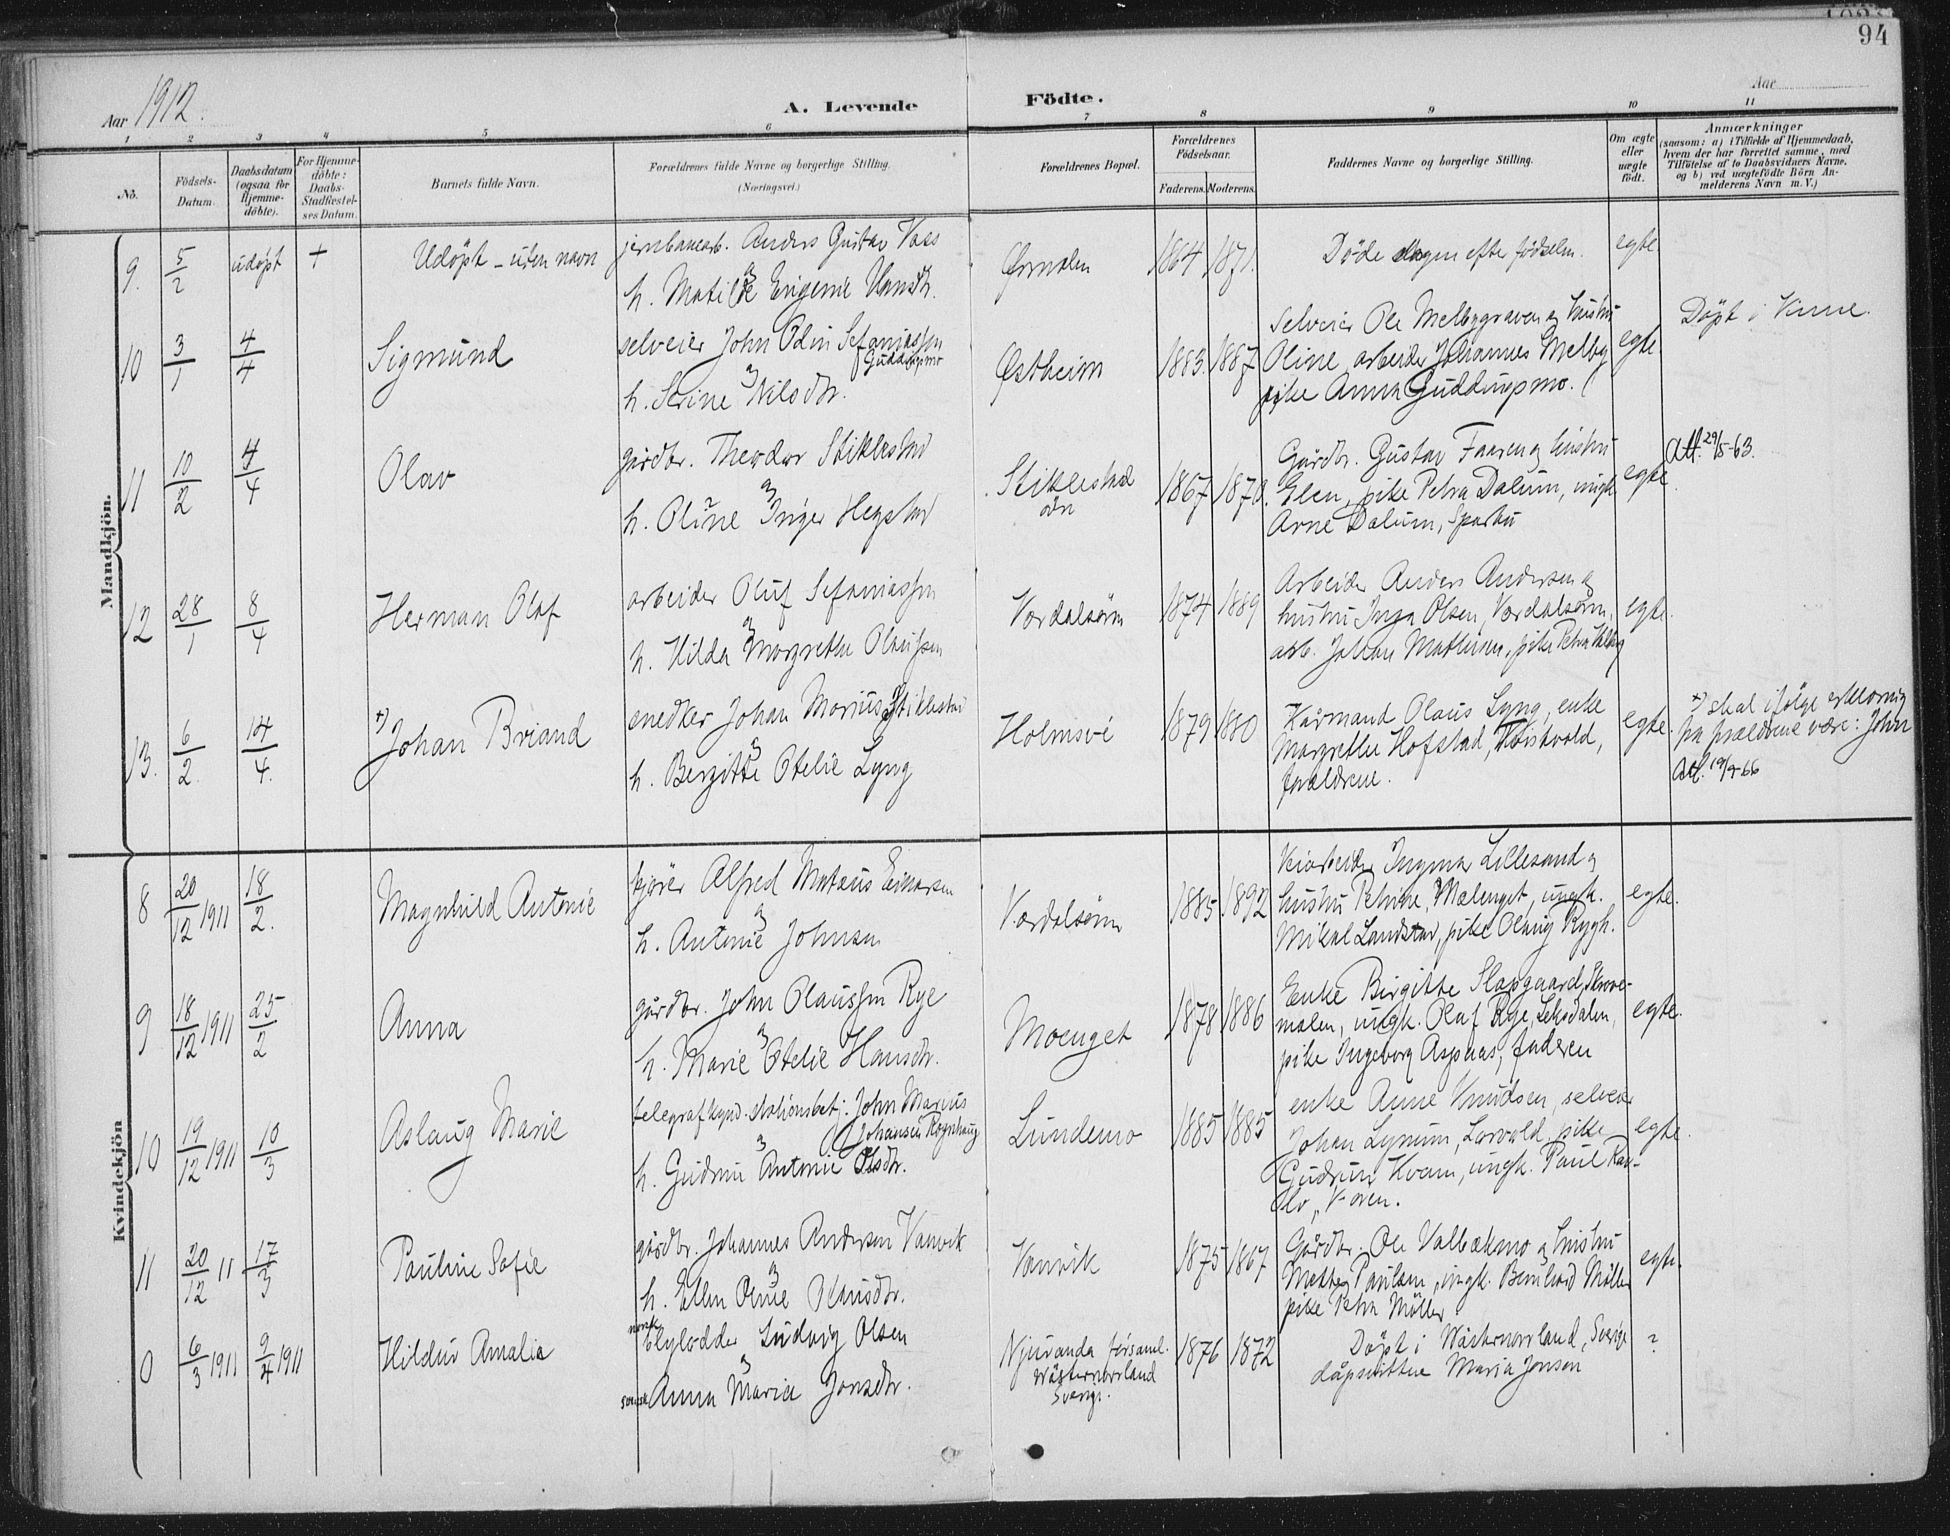 94
Aar 1912.
A. Levende Födte.
Aar
1 2 3 4 5 6 7 8 9 10 11
No.
Födsels-Datum.
Daabsdatum (ogsaa for Hjemme-döbte).
For Hjemme-döbte: Daabs-Stadfæstel-ses Datum.
Barnets fulde Navn.
Forældrenes fulde Navne og borgerlige Stilling. (Næringsvei.)
Forældrenes Bopæl.
Forældrenes Födselsaar.
Faderens. Moderens.
Faddernes Navne og borgerlige Stilling.
Om ægte eller uægte födt.
Anmærkninger
(saasom: a) i Tilfælde af Hjemmedaab, hvem der har forrettet samme, med Tilföielse af to Daabsvidners Navne, og b) ved uægtefödte Börn An-melderens Navn m. V.)
Mandkjön.
9. 5/2 udøpt + Udöpt - uten navn
jernbanearb. Anders Gustav Vass
og
h. Matilde Eugenie Hansdr.
Ørmelen 1864 1871.
Döde dagen efter födselen. egte
10 3/1 4/4 Sigmund
selveier John Odin Sefaniassen
Guddingsmo
og
h. Serine Nilsdtr.
Østheim 1883. 1887
Selveier Ole Melbygraven og hustru
Oline, arbeider Johannes Melby
pike Anna Guddingsmo.
egte.
Döpt i Vinne.
11 10/2 4/4 Olav
gårdbr. Theodor Stiklestad
og
h. Oline Inger Hegstad
Stiklestad
1867 1878.
Gårdbr. Gustav Faaren og hustru
Elen, pike Petra Dalum, ungk.
Arne Dalum, Sparbu
egte.
Att. 29/5-63.
12 28/1 8/4 Herman Olaf
arbeider Oluf Sefaniassen
og
h. Hilda Margrethe Olaussen
Værdalsøren 1874 1889
Arbeider Anders Andersen og
hustru Inga Olsen, Værdalsøren,
arb. Johan Mathisen, pike Petra
egte.
13. 6/2. 14/4. +) Johan Briand
snedker Johan Marius Stiklestad
og
h. Bergitte Otelie Lyng
Holmsvé 1879 1880
Kårmand Olaus Lyng, enke
Margrethe Hofstad,
forældrene.
egte.
+) skal ifölge erklæring
fra forældrene være: John
Att. 19/9-66
Kvindekjön
8 20/12 1911 18/2. Magnhild Antonie
kjörer Alfred Mateus Einarsen
og
h. Antonie Johnsen
Værdalsøren 1885. 1892
Veiarbeider Ingmar Lillesand og
hustru Petrine, Mælenget, ungk.
Mikal Landstad, pike Olaug Rygh.
egte.
9 18/12 1911 25/2 Anna
gårdbr. John Olaussen Rye
og
h. Marie Otelie Hansdtr.
Moenget 1878 1886
Enke Birgitte Slapgaard, Skrove-
malen, ungk. Olaf Rye, Leksdalen,
pike Ingeborg Aspaas, faderen
egte.
10 19/12 1911 10/3 Aslaug Marie
telegrafkynd. stationsbetj. John Marius
Johansen Rognhaug
og
h. Gudrun Antonie Olsdtr.
Lundemo 1885 1885
enke Anne Knudsen, selveier
Johan Lynum, pike
Gudrun Kvam, ungk. Paul Rav-
lo, Voren.
egte.
11 20/12 11 17/3 Pauline Sofie
gårdbr. Johannes Andersen Vanvik
og
h. Ellen Oline Olausdtr.
Vanvik 1875 1867
Gårdbr. Ole Valbækmo og hustru
Mette Paulsen, ungk. Bernhard Möller
pike Petra Möller
egte.
0 6/3 1911 9/4 1911 Hildur Amalia
norsk
Ludvig Olsen
og
svensk Anna Maria Jonsdtr.
Njurunda församl.
Wästernorrland
Sverige.
1876 1872
Döpt i Wästernorrland, Sverige
dåpsvittne Maria Jonson
?